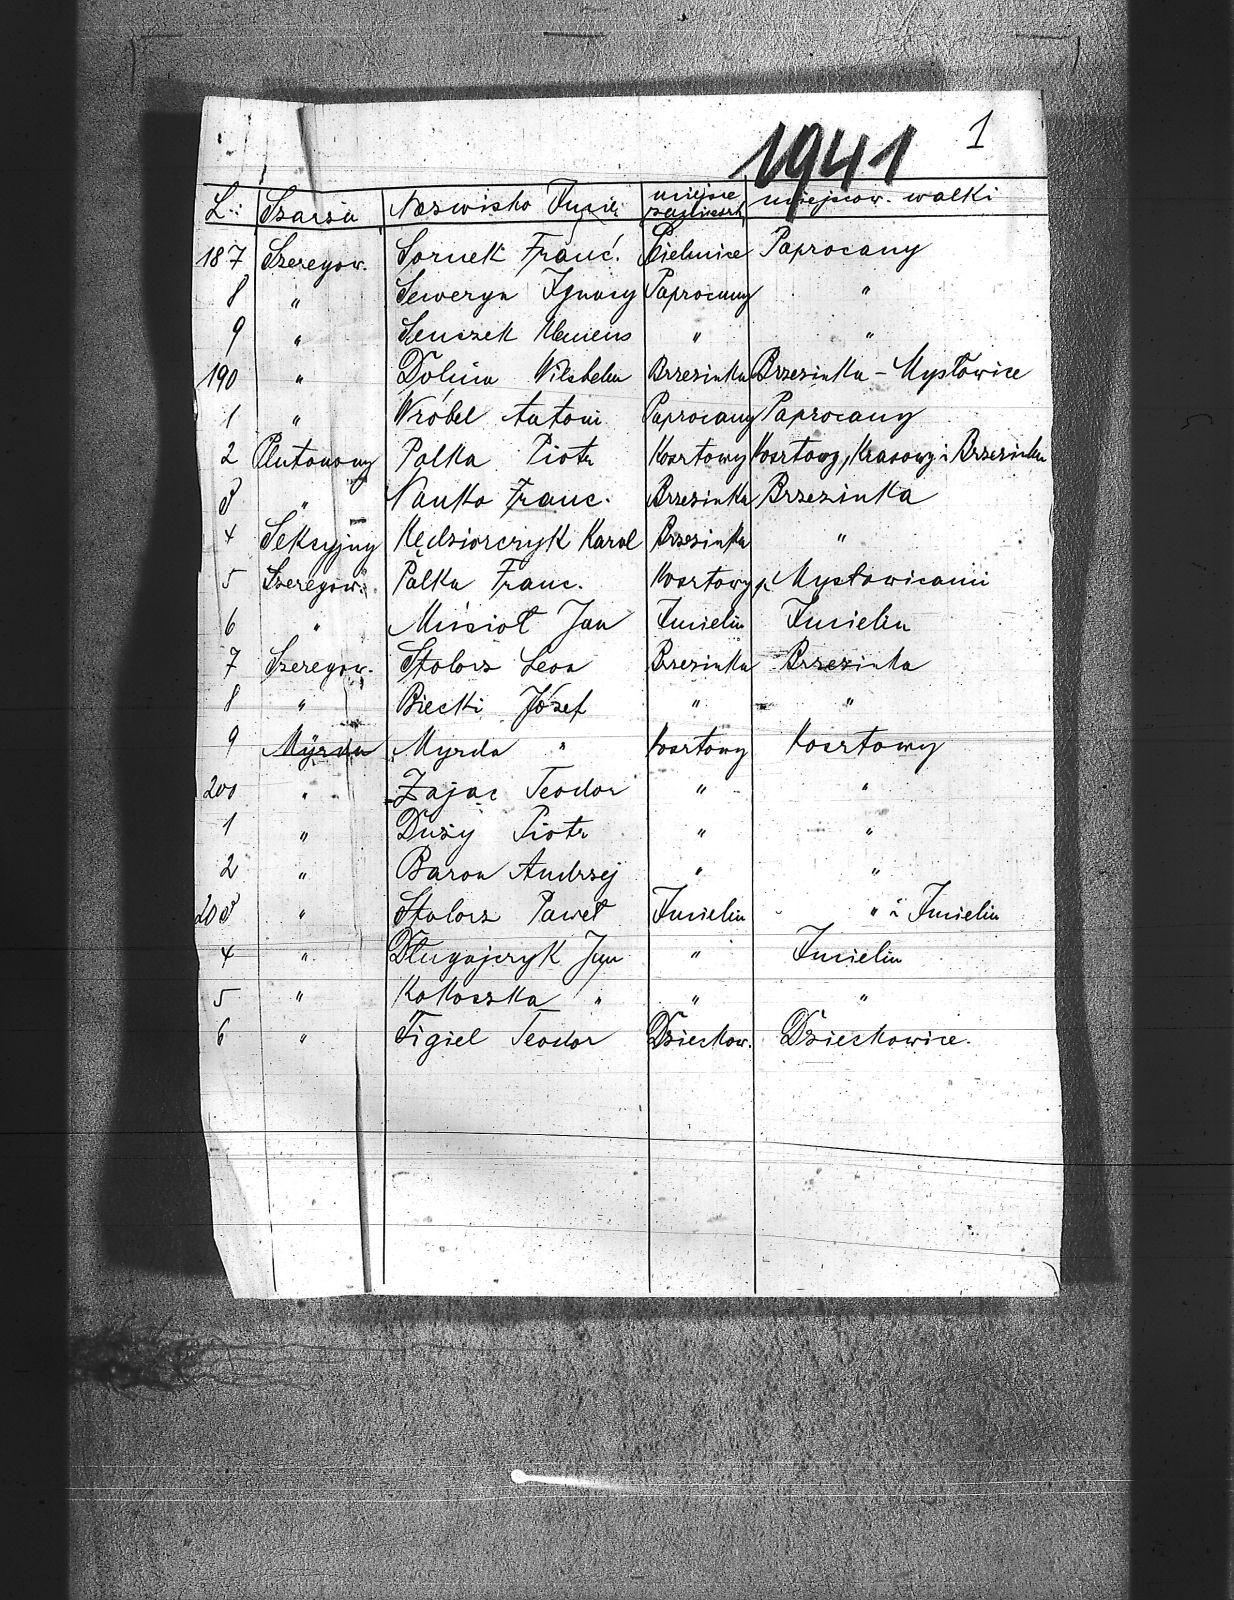 1941 1
L.: Szarża Nazwisko Imię miejsce zamieszk. miejscow. walki
187 Szeregow. Sornek Franc. Cielmice Paprocany
8 " Seweryn Ignacy Paprocany "
9 " Senczek Klemens " "
190 " Dolina Wilhelm Brzezinka Brzezinka - Mysłowice
1 " Wróbel Antoni Paprocany Paprocany
2 Plutonowy Palka Piotr Kosztowy Kosztowy, Krasowy i Brzezinka
3 " Nauko Franc. Brzezinka Brzezinka
4 Sekcyjny Kędziorczyk Karol Brzezinka "
5 Szeregow. Palka Franc. Kosztowy p. Mysłowicami
6 " Misioł Jan Imielin Imielin
7 Szeregow. Stolorz Leon Brezinka Brzezinka
8 " Biecki Józef " "
9 Myrda Myrda " Kosztowy Kosztowy
200 " Zając Teodor " "
1 " Duży Piotr " "
2 " Baron Andrzej " "
203 " Stolorz Paweł Imielin " i Imielin
4 " Długajczyk Jan " Imielin
5 " Kokoszka " " "
6 " Figiel Teodor Dzieckow. Dzieckowice.